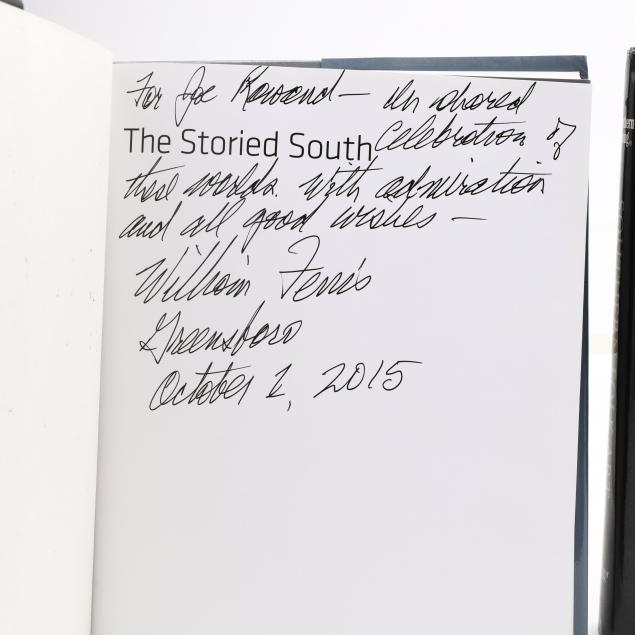 For Joe Rowand — In shared
The Storied South celebration of
these worlds. With admiration
and all good wishes —
William Ferris
Greensboro
October 1, 2015